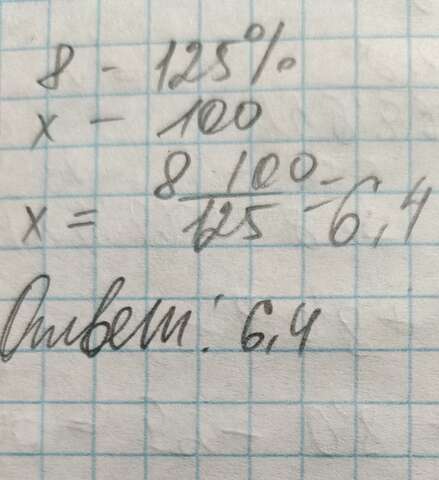 8 - 125%
x - 100
x = 8 100/125 = 6,4
Ответ: 6,4